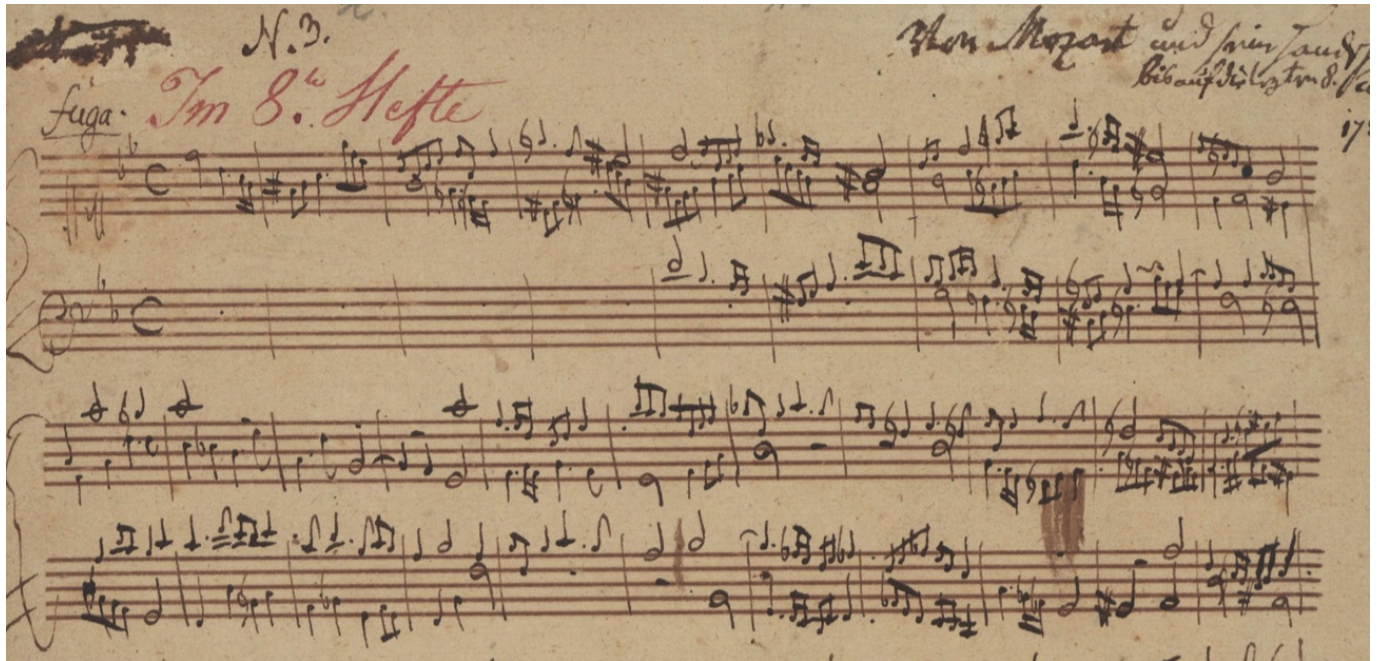 N. 3.
Von Mozart und seine Hands
bis auf die letzten 8.
fuga. Im 8.ten Hefte
17